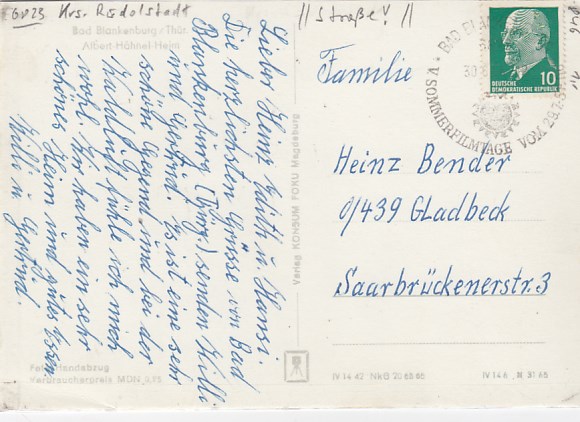 GV23 Krs. Rudolstadt
Bad Blankenburg / Thür.
Albert-Hähnel-Heim
Lieber Heinz Edith u. Hansi.
Die herzlichsten Grüsse von Bad
Blankenburg (Thürg.) senden Willi
und Gertrud. Es ist eine sehr
schöne Gegend und bei der
Waldluft fühle ich mich
wohl. Wir haben ein sehr
schönes Heim und gutes Essen
Willi u. Gertrud.
Foto-Handabzug
Verbraucherpreis MDN 0,25
Verlag KONSUM FOKU Magdeburg
//Straße! //
Familie
Heinz Bender
0/439 Gladbeck
Saarbrückenerstr. 3
BAD BLAN
SOMMERFILMTAGE VOM 29.7.-5
10
DEUTSCHE
DEMOKRATISCHE REPUBLIK
IV 14 42 NRG 20 65 65
IV 14 6 III 30 65